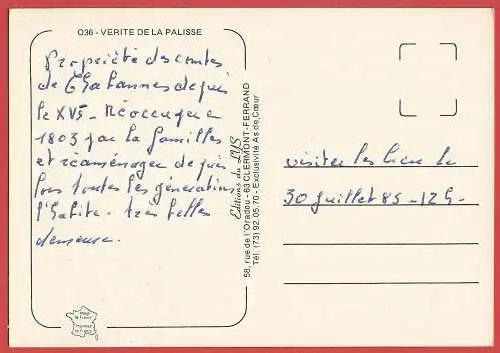 036 - VERITE DE LA PALISSE
Propriété des comtes
de Chabannes depuis
le XVe. Réoccupée en
1803 par la familles
et réaménager depuis
lors toutes les générations
l'habite. très belles
demeure.
Editions du LYS
58, rue de l'Oradou - 63 CLERMONT-FERRAND
Tél. (73) 92.05.70 - Exclusivité As de Cœur
visiter les lieu le
30 juillet 85 - 12h.
Image
de France
Imprimée
en France